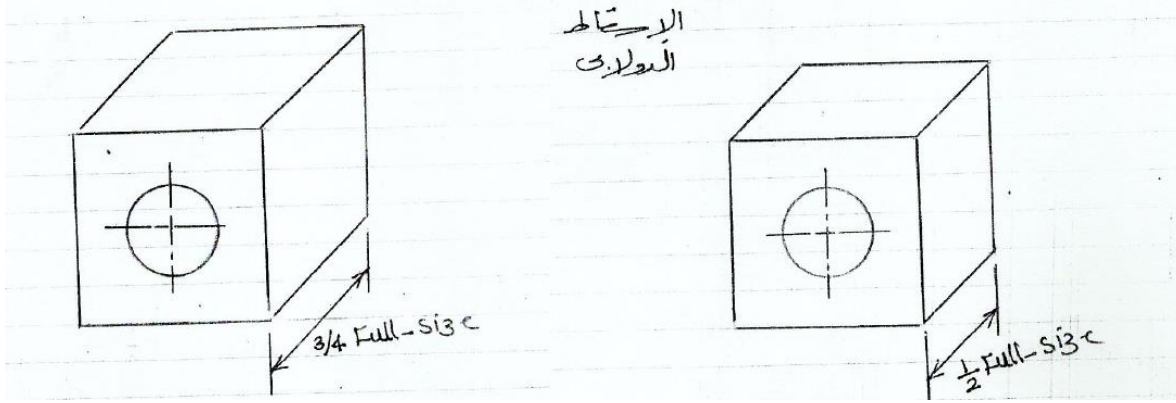 الاسقاط
الدولابى
3/4 Full-Size
1/2 Full-Size